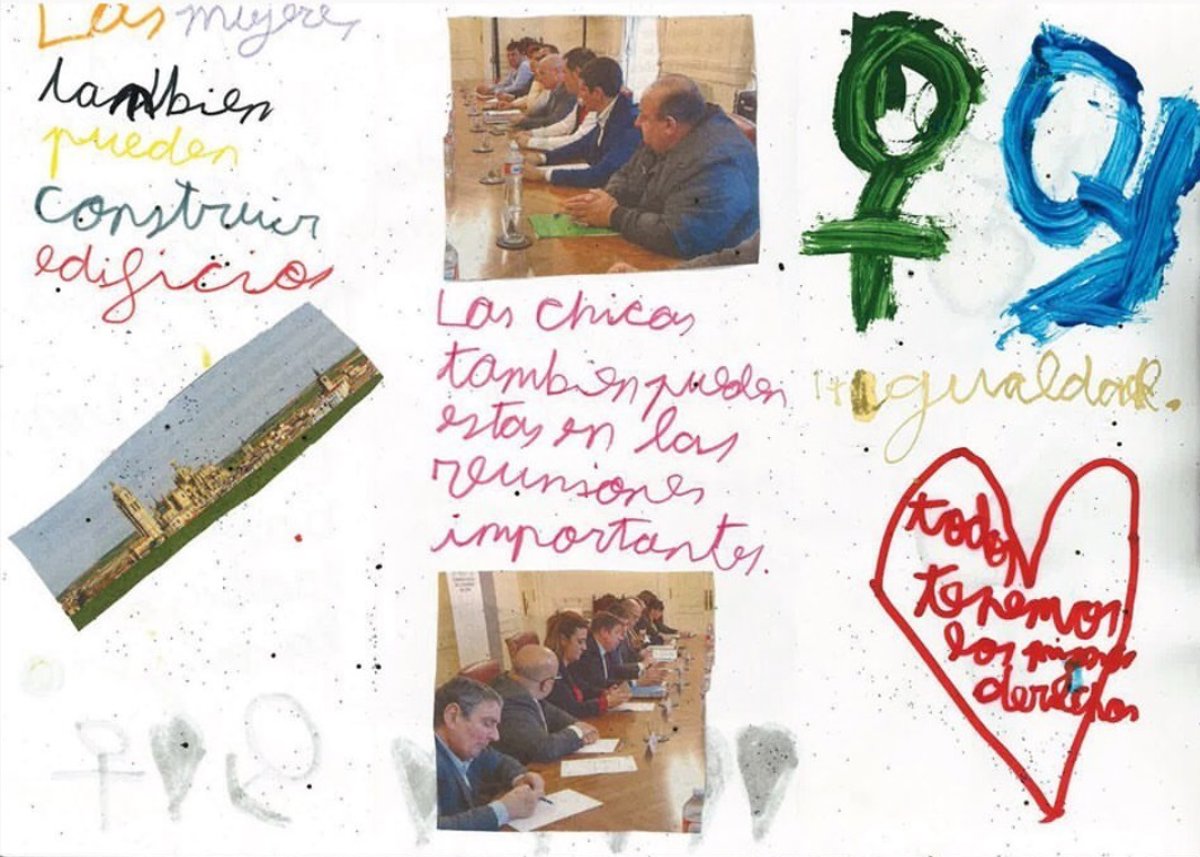 Las mujeres
tambien
pueden
construir
edificios
Las chicas
tambien pueden
estas en las
reuniones
importantes.
igualdad.
todos
tenemos
los mismos
derechos